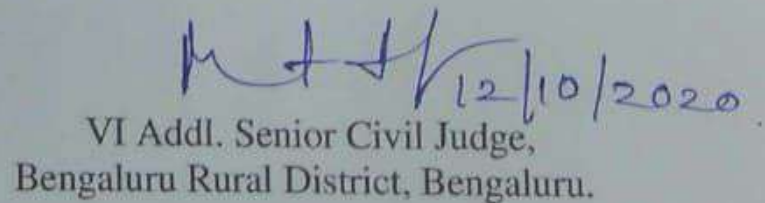 12/10/2020
VI Addl. Senior Civil Judge,
Bengaluru Rural District, Bengaluru.